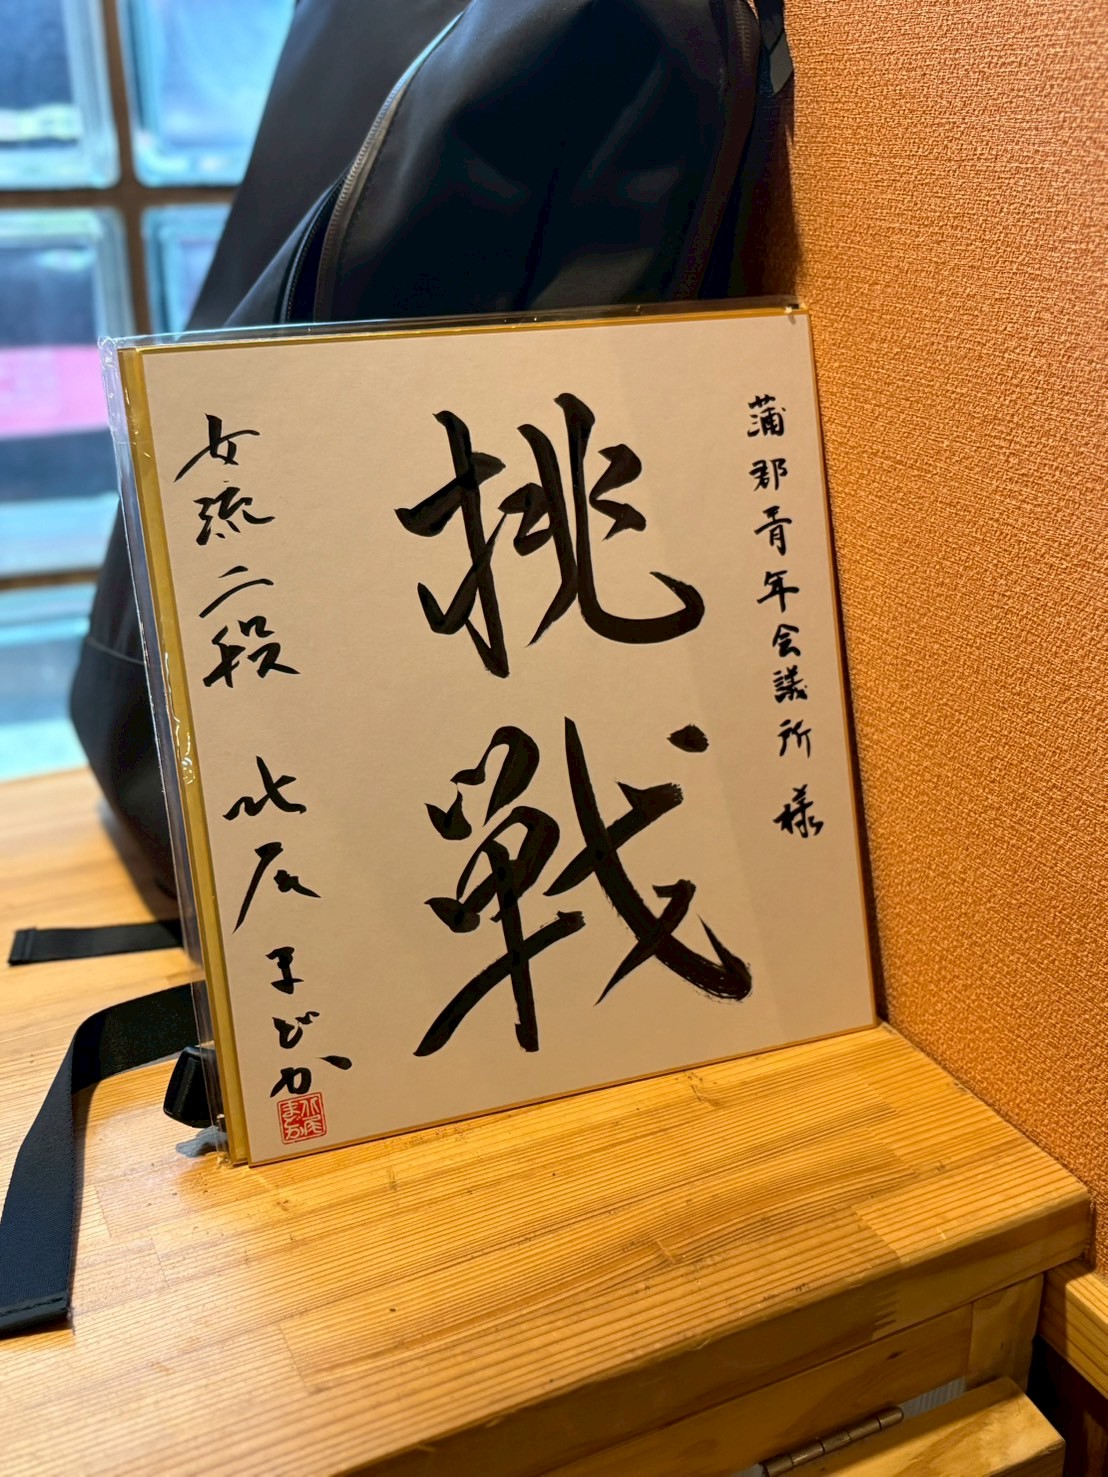 蒲郡青年会議所 様
挑戦
女流二段 北尾まどか
北尾
まどか